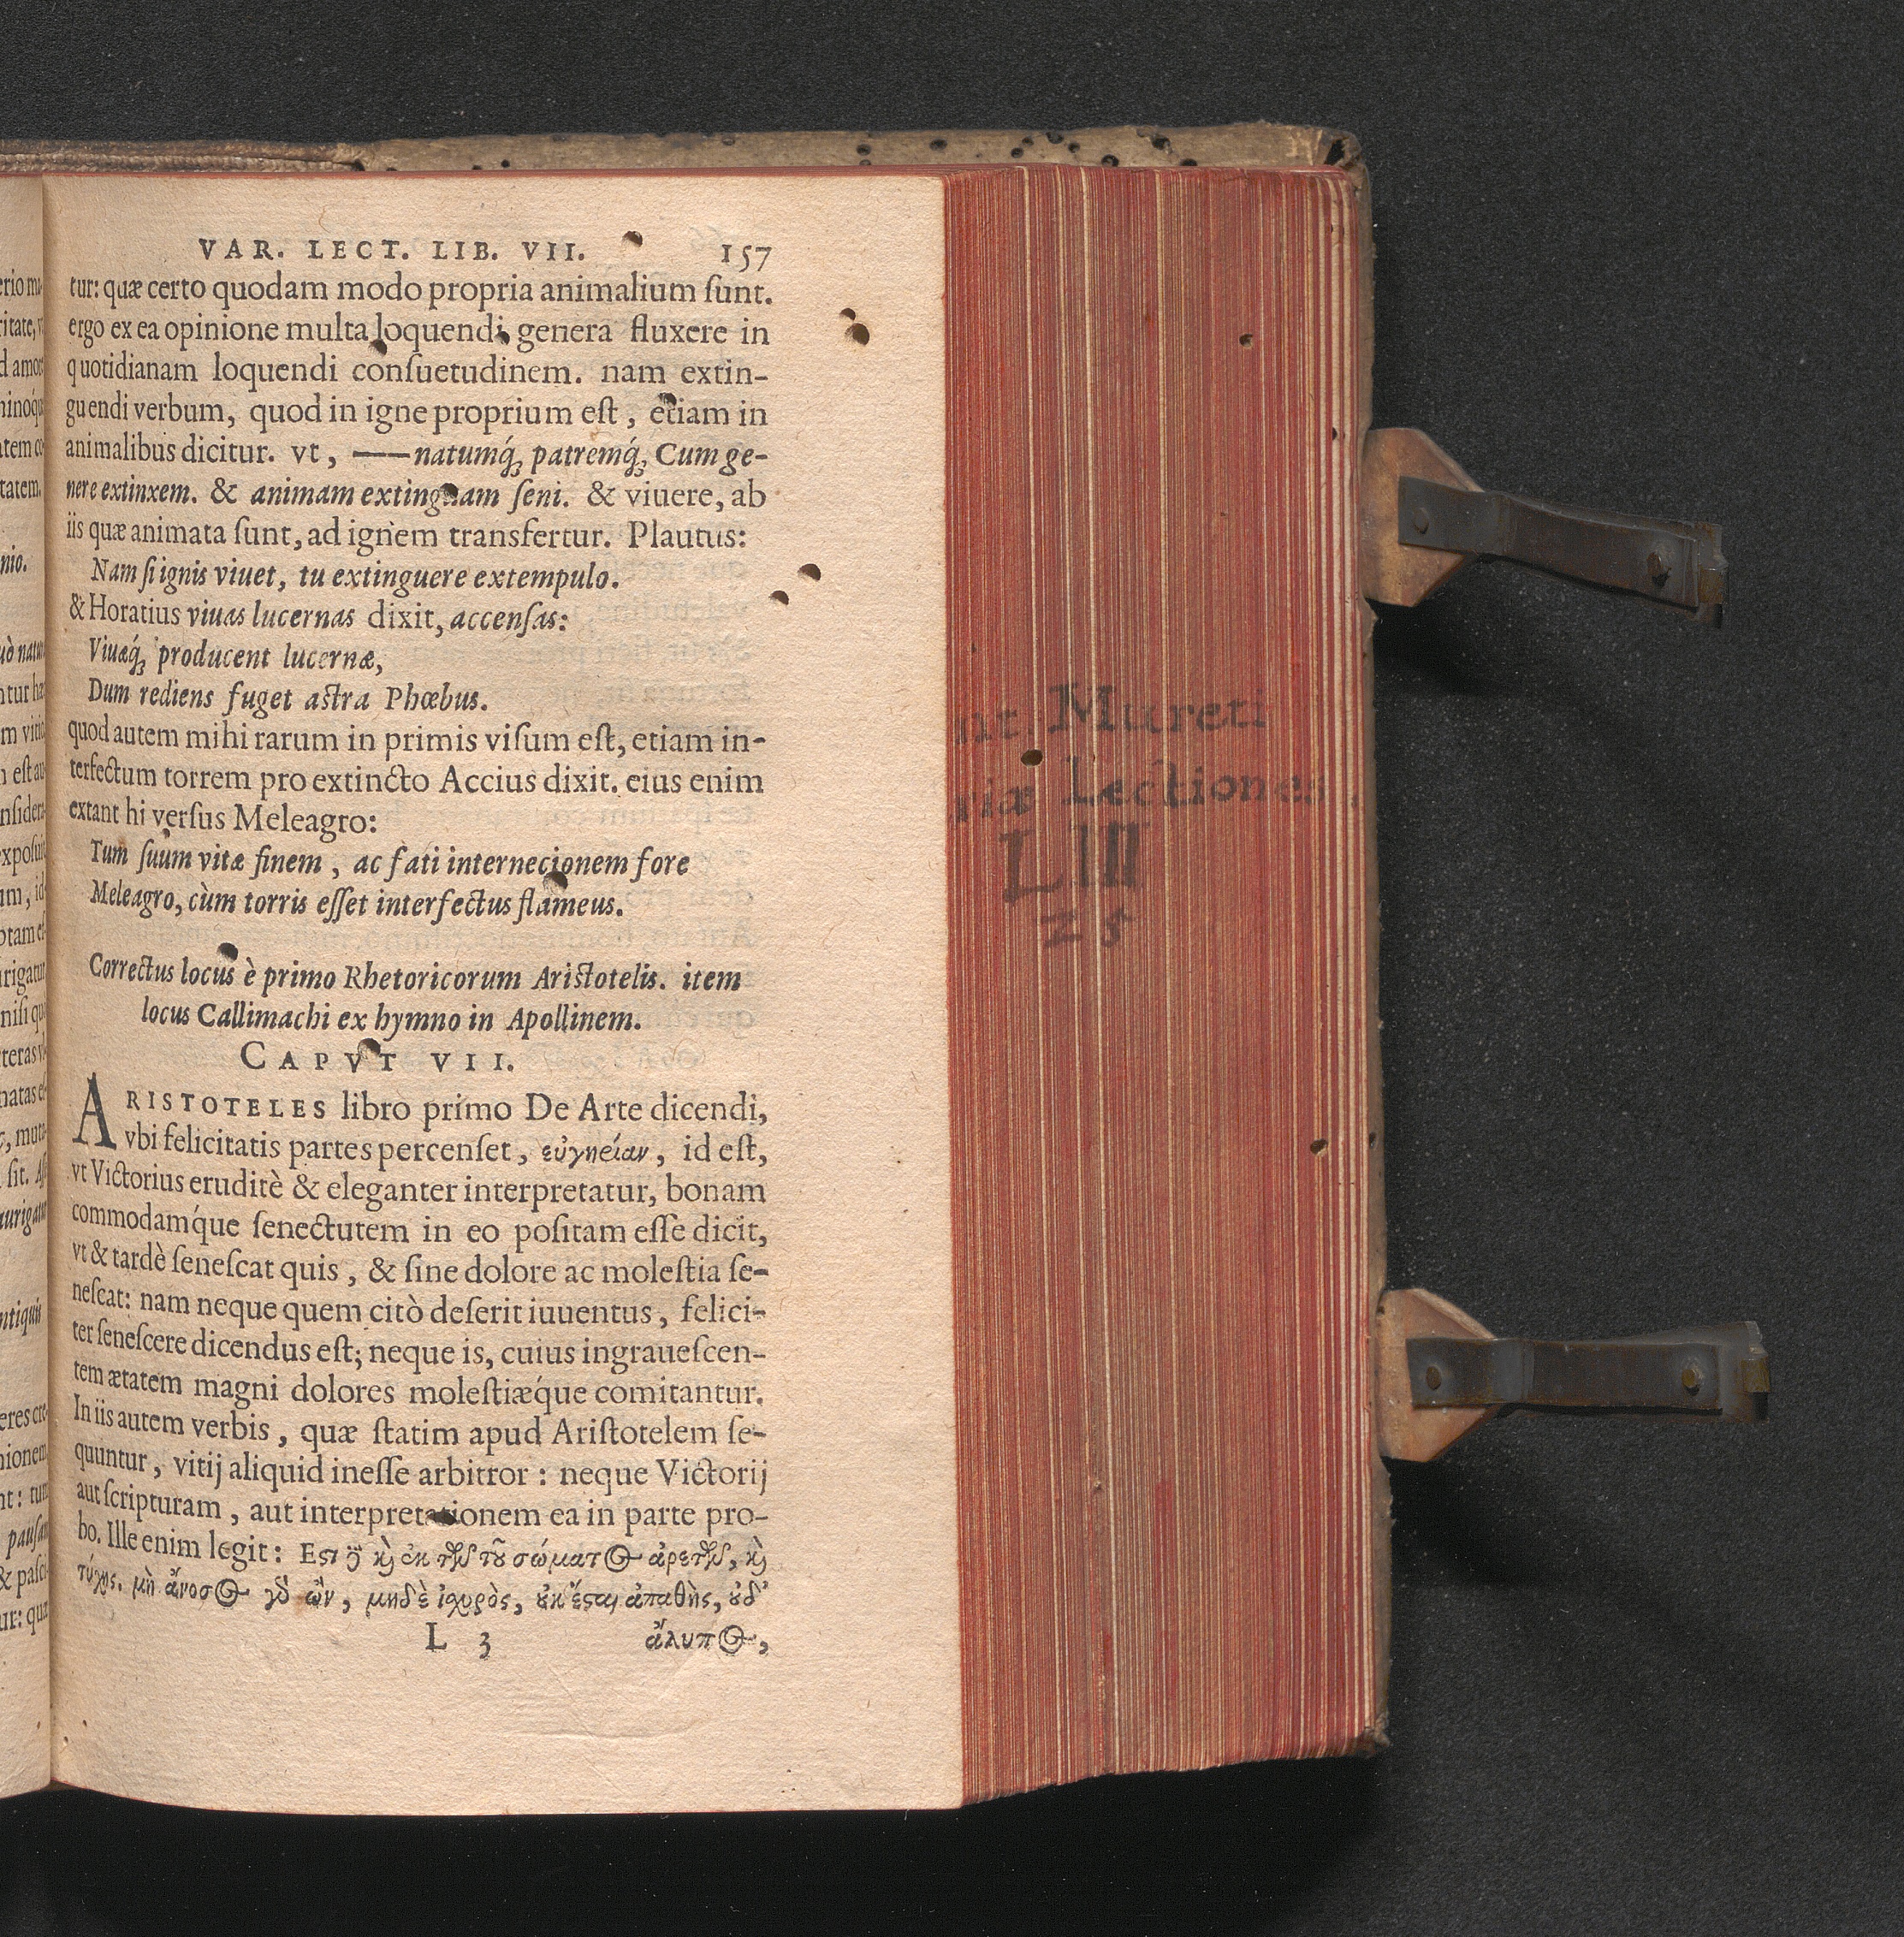 VAR. LECT. LIB. VII. 157
tur: quæ certo quodam modo propria animalium ſunt.
ergo ex ea opinione multa loquendi genera fluxere in
quotidianam loquendi conſuetudinem. nam extin-
guendi verbum, quod in igne proprium eſt, etiam in
animalibus dicitur. vt, —— natumq́; patremq́; Cum ge-
nere extinxem. & animam extinguam ſeni. & viuere, ab
iis quæ animata ſunt, ad ignem transfertur. Plautus:
Nam ſi ignis viuet, tu extinguere extempulo.
& Horatius viuas lucernas dixit, accenſas:
Viuæq́; producent lucernæ,
Dum rediens fuget astra Phœbus.
quod autem mihi rarum in primis viſum eſt, etiam in-
terfectum torrem pro extincto Accius dixit. eius enim
extant hi verſus Meleagro:
Tum ſuum vitæ finem, ac fati internecionem fore
Meleagro, cùm torris eſſet interfectus flameus.
Correctus locus è primo Rhetoricorum Aristotelis. item
locus Callimachi ex hymno in Apollinem.
CAPVT VII.
ARISTOTELES libro primo De Arte dicendi,
vbi felicitatis partes percenſet, εὐγηείαν, id eſt,
vt Victorius eruditè & eleganter interpretatur, bonam
commodamq́ue ſenectutem in eo poſitam eſſe dicit,
vt & tardè ſeneſcat quis, & ſine dolore ac moleſtia ſe-
neſcat: nam neque quem citò deſerit iuuentus, felici-
ter ſeneſcere dicendus eſt; neque is, cuius ingraueſcen-
tem ætatem magni dolores moleſtiæq́ue comitantur.
In iis autem verbis, quæ ſtatim apud Ariſtotelem ſe-
quuntur, vitij aliquid ineſſe arbitror: neque Victorij
aut ſcripturam, aut interpretationem ea in parte pro-
bo. Ille enim legit: Εςι ἢ καὶ ἐκ τῆς τοῦ σώματος ἀρετῆς, καὶ
τύχης. μὴ ἄνοσος γὸ ὢν, μηδὲ ἰχυρὸς, ȣκ ἔςαι ἀπαθὴς, ȣδ'
L 3 ἄλυπος,
Mureti
Lectiones
LIII
25